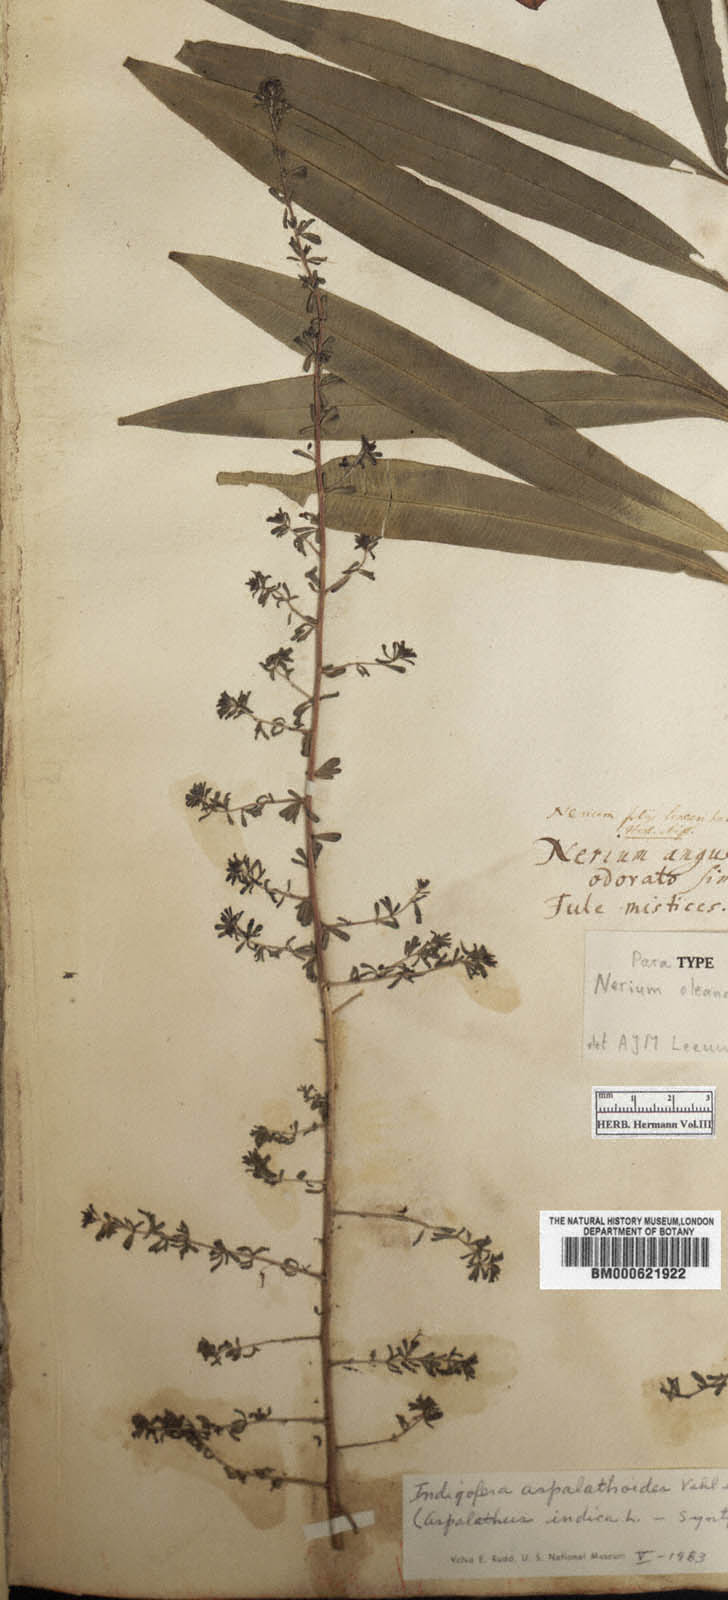 Nerium
Nerium angu
odorato sim
Tule mistices.
Para TYPE
Nerium oleand
det AJM Leeuw
mm 1 2 3
HERB. Hermann Vol.III
THE NATURAL HISTORY MUSEUM,LONDON
DEPARTMENT OF BOTANY
BM000621922
Indigofera aspalathoides Vahl
(Aspalathus indica L. – Synty
Velva E. Rudd, U. S. National Museum V-1983